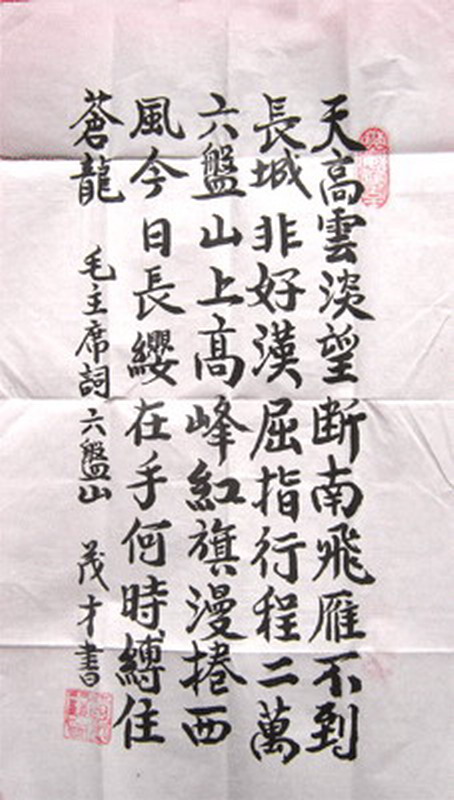 天高雲淡望断南飛雁不到
長城非好漢屈指行程二萬
六盤山上高峰紅旗漫捲西
風今日長纓在手何時縛住
蒼龍 毛主席詞六盤山 茂才書